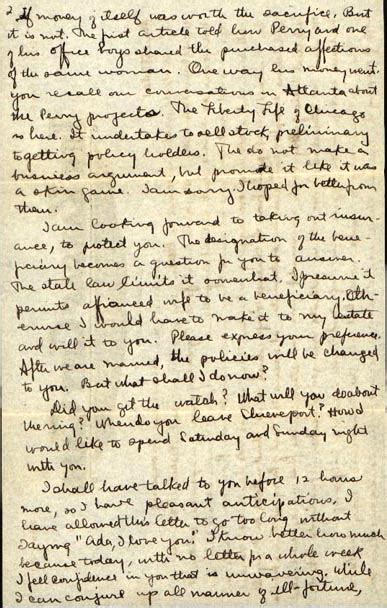 2. If money itself was worth the sacrifice. But
it is not. The first article told how Perry and one
of his office boys shared the purchased affections
of the same woman. One way his money went.
You recall our conversations in Atlanta about
the Perry projects. The Liberty Life of Chicago
is here. It undertakes to sell stock, preliminary
to getting policy holders. The do not make a
business argument, but promote it like it was
a skin game. I am sorry. I hoped for better from
them.
I am looking forward to taking out insur-
ance, to protect you. The designation of the bene-
ficiary becomes a question for you to answer.
The state law limits it somewhat. I presume it
permits affianced wife to be a beneficiary. Oth-
erwise I would have to make it to my estate
and will it to you. Please express your preference.
After we are married, the policies will be changed
to you. But what shall I do now?
Did you get the watch? What will you do about
the ring? When do you leave Shreveport? How I
would like to spend Saturday and Sunday night
with you.
I shall have talked to you before 12 hours
more, so I have pleasant anticipations. I
have allowed this letter to go too long without
saying "Ada, I love you." I know better how much
because today, with no letter for a whole week
I feel confidence in you that is unwavering. While
I can conjure up all manner of ill-fortune,